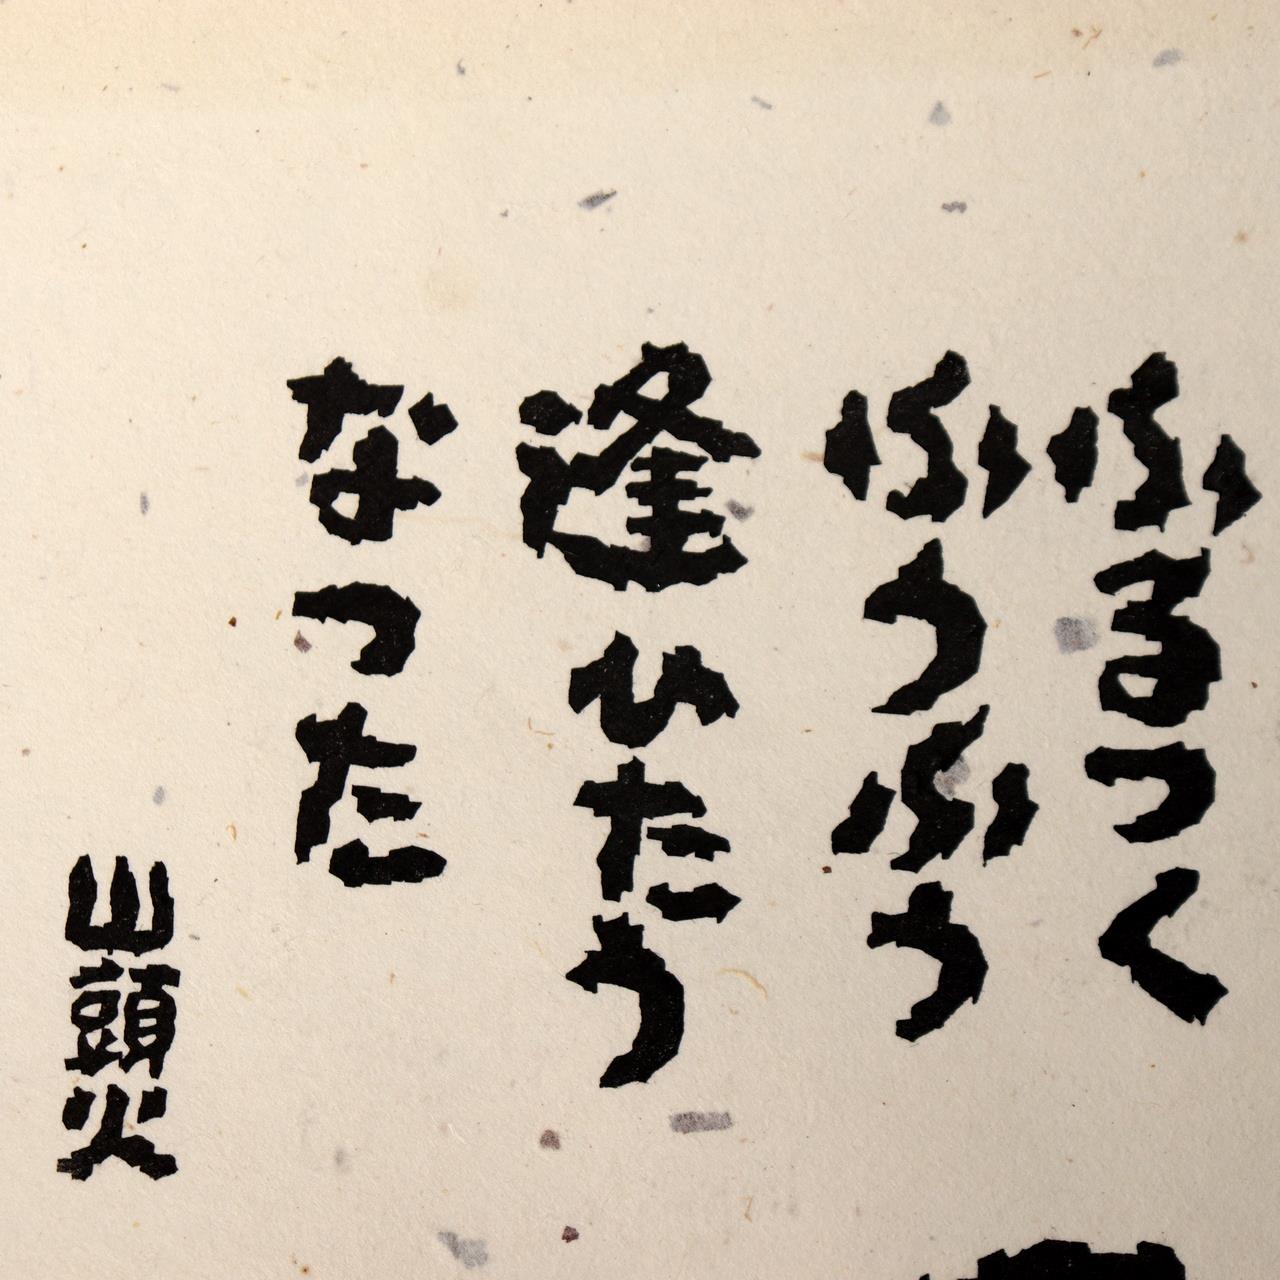 ふるつく
ふうふう
逢ひたう
なつた
山頭火